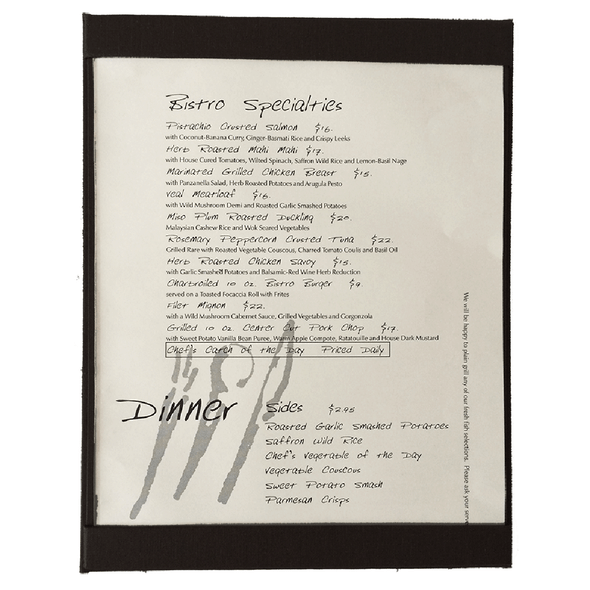 Bistro Specialties
Pistachio Crusted Salmon $16.
with Coconut-Banana Curry, Ginger-Basmati Rice and Crispy Leeks
Herb Roasted Mahi Mahi $17.
with House Cured Tomatoes, Wilted Spinach, Saffron Wild Rice and Lemon-Basil Nage
Marinated Grilled Chicken Breast $15.
with Panzanella Salad, Herb Roasted Potatoes and Arugula Pesto
Veal Meatloaf $16.
with Wild Mushroom Demi and Roasted Garlic Smashed Potatoes
Miso Plum Roasted Duckling $20.
Malaysian Cashew Rice and Wok Seared Vegetables
Rosemary Peppercorn Crusted Tuna $22.
Grilled Rare with Roasted Vegetable Couscous, Charred Tomato Coulis and Basil Oil
Herb Roasted Chicken Savoy $15.
with Garlic Smashed Potatoes and Balsamic-Red Wine Herb Reduction
Charbroiled 10 oz. Bistro Burger $9.
served on a Toasted Focaccia Roll with Frites
Filet Mignon $22.
with a Wild Mushroom Cabernet Sauce, Grilled Vegetables and Gorgonzola
Grilled 10 oz Center Cut Pork Chop $17.
with Sweet Potato Vanilla Bean Puree, Warm Apple Compote, Ratatouille and House Dark Mustard
Chef's Catch of the Day Priced Daily
Dinner
Sides $2.95
Roasted Garlic Smashed Potatoes
Saffron Wild Rice
Chef's Vegetable of the Day
Vegetable Couscous
Sweet Potato Smash
Parmesan Crisps
We will be happy to plain grill any of our fresh fish selections. Please ask your serve